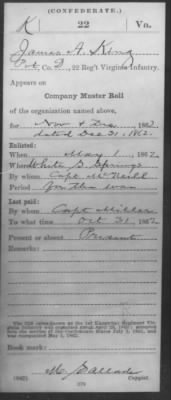 (CONFEDERATE.)
K 22 Va.
James A. King
Pvt, Co. D, 22 Reg't Virginia Infantry.
Appears on
Company Muster Roll
of the organization named above,
for Nov & Dec 1862
dated Dec 31, 1862.
Enlisted:
When May 1 1862
Where White S. Springs
By whom Capt McNeill
Period for the war
Last paid:
By whom Capt Miller
To what time Oct 31 1862
Present or absent Present
Remarks:
Book mark:
Copyist.